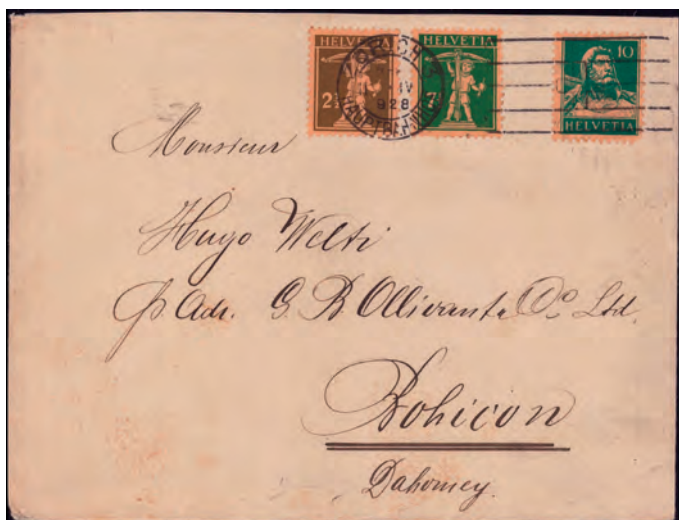 HELVETIA HELVETIA 10
2½ 7½ HELVETIA
IV
928
Monsieur
Hugo Welti
p. Adr. G. B. Ollivant & Co. Ltd.
Bohicon
Dahomey.